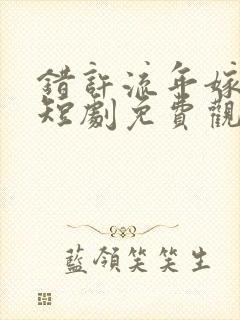 錯許流年嫁
短劇免費觀
藍領笑笑生